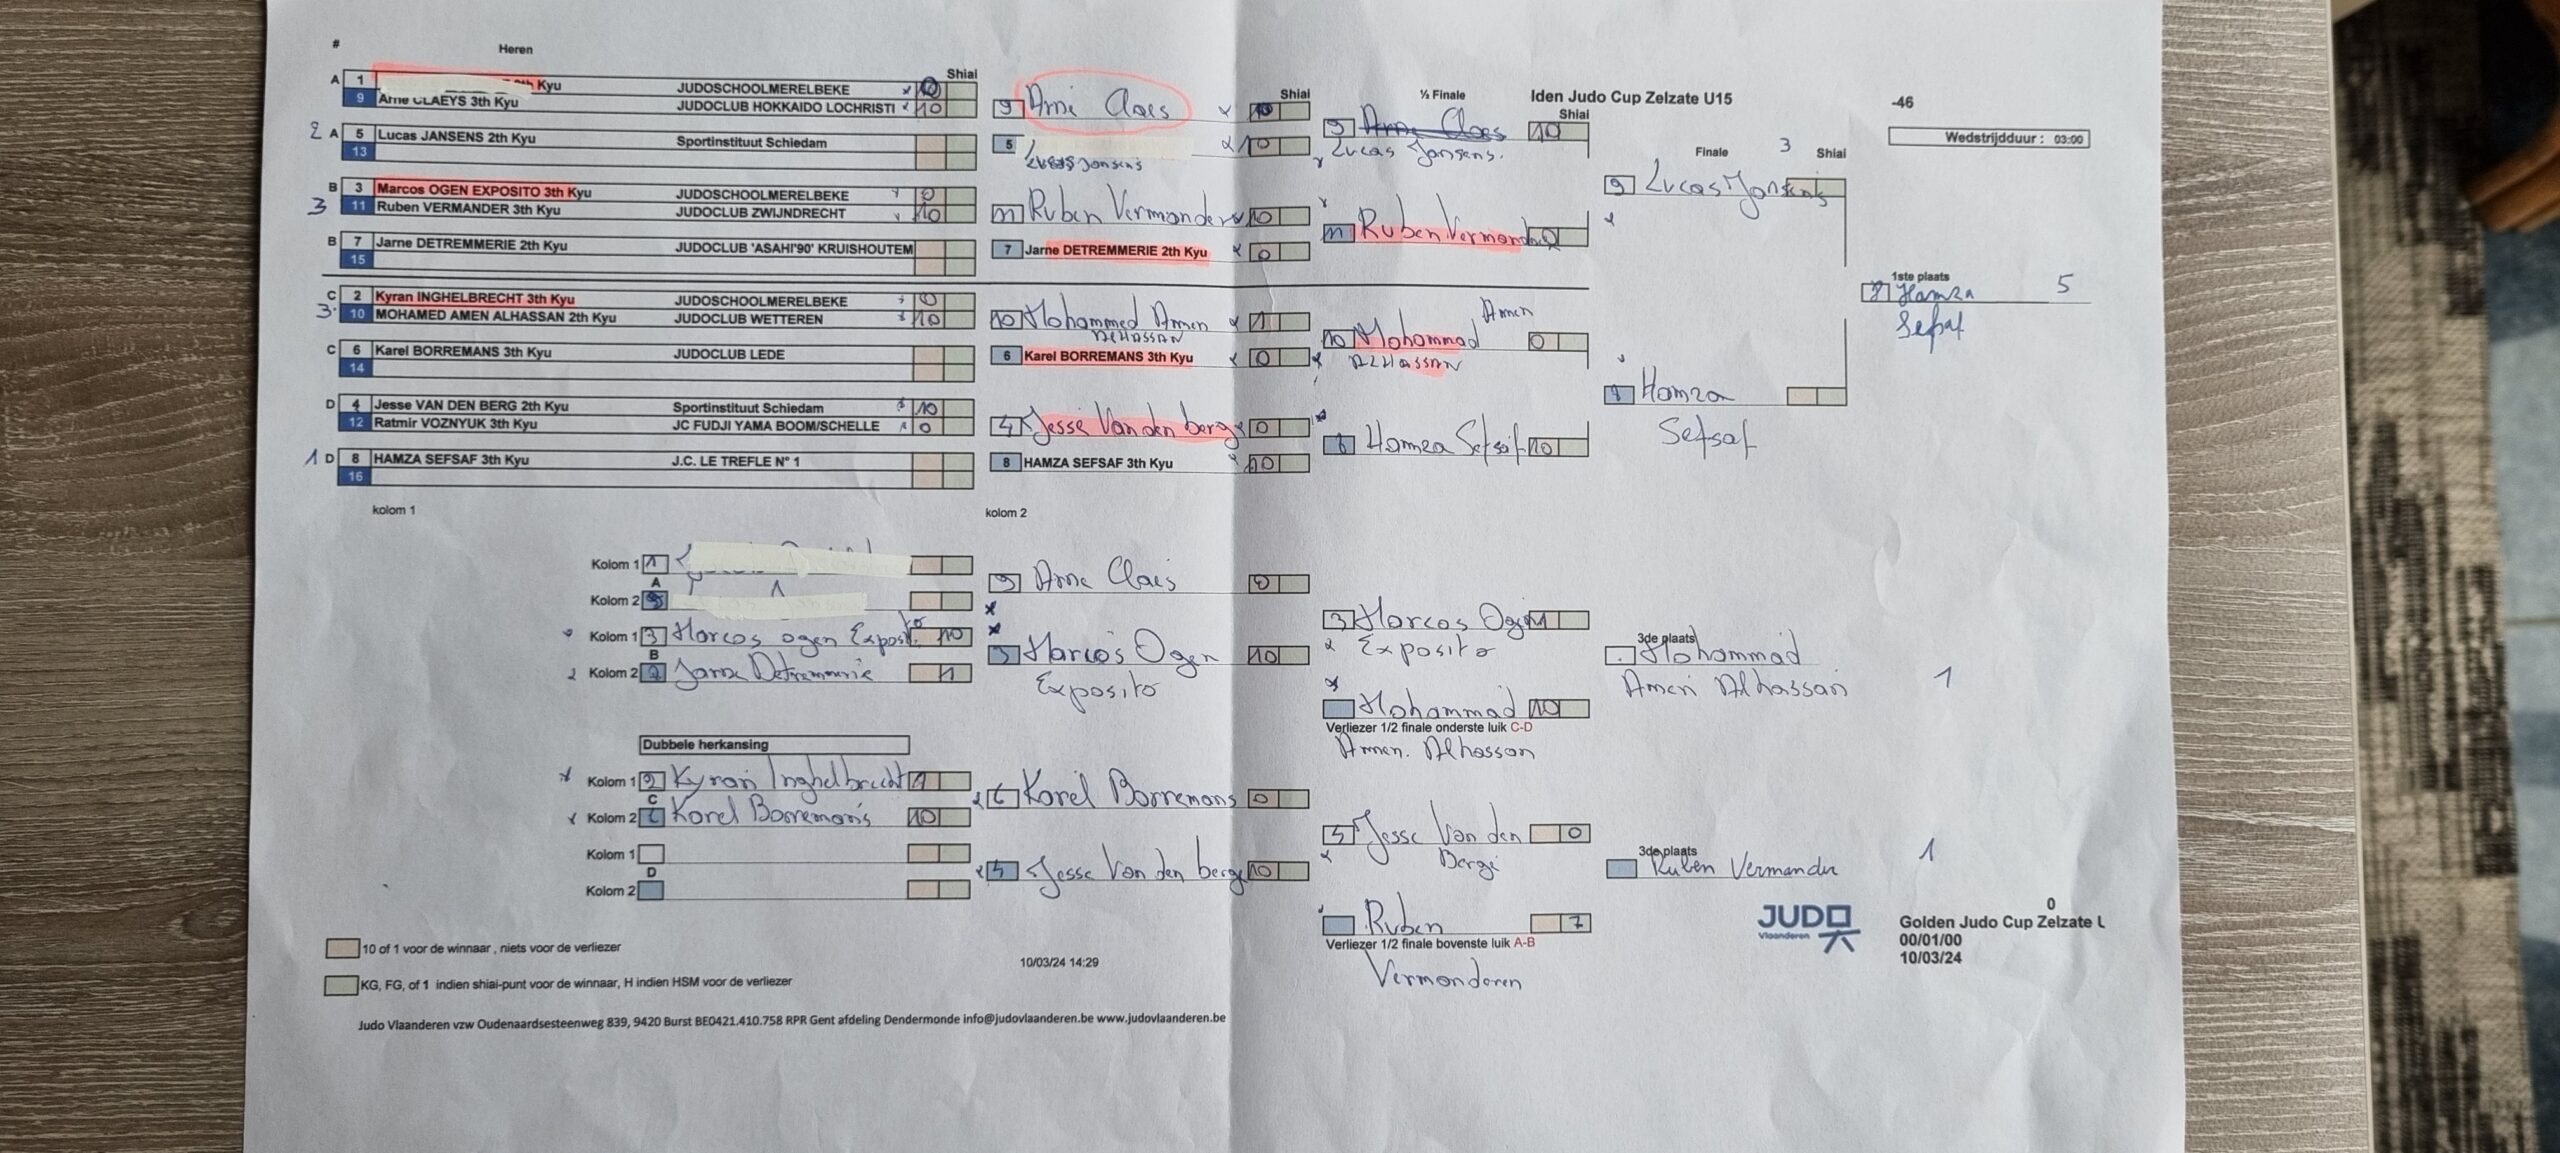 #
Heren
Shiai
A 1 Kyu JUDOSCHOOLMERELBEKE
9 Arne CLAEYS 3th Kyu JUDOCLUB HOKKAIDO LOCHRISTI 10
2 A 5 Lucas JANSENS 2th Kyu Sportinstituut Schiedam
13
B 3 Marcos OGEN EXPOSITO 3th Kyu JUDOSCHOOLMERELBEKE 0
3 11 Ruben VERMANDER 3th Kyu JUDOCLUB ZWIJNDRECHT 10
B 7 Jarne DETREMMERIE 2th Kyu JUDOCLUB 'ASAHI'90' KRUISHOUTEM
15
C 2 Kyran INGHELBRECHT 3th Kyu JUDOSCHOOLMERELBEKE 0
3 10 MOHAMED AMEN ALHASSAN 2th Kyu JUDOCLUB WETTEREN 10
C 6 Karel BORREMANS 3th Kyu JUDOCLUB LEDE
14
D 4 Jesse VAN DEN BERG 2th Kyu Sportinstituut Schiedam 10
12 Ratmir VOZNYUK 3th Kyu JC FUDJI YAMA BOOM/SCHELLE 0
1 D 8 HAMZA SEFSAF 3th Kyu J.C. LE TREFLE N° 1
16
kolom 1
Shiai
9 Arne Claes
5 10
Lucas Jansens
11 Ruben Vermander 10
7 Jarne DETREMMERIE 2th Kyu 0
10 Mohammed Amen 1
ALHASSAN
6 Karel BORREMANS 3th Kyu 0
4 Jesse Van den berg 0
8 HAMZA SEFSAF 3th Kyu 10
kolom 2
½ Finale
Iden Judo Cup Zelzate U15
Shiai
9 Arne Claes 10
Lucas Jansens.
11 Ruben Vermander 0
Amen
10 Mohammad 0
ALHASSAN
8 Hamza Sefsaf 10
Finale 3 Shiai
9 Lucas Jansens
8 Hamza
Sefsaf
-46
Wedstrijdduur : 03:00
1ste plaats
8 Hamza 5
Sefsaf
Kolom 1 1
A
Kolom 2
Kolom 1 3 Marcos ogen Exposito 10
B
Kolom 2 7 Jarne Detremmerie 1
Dubbele herkansing
Kolom 1 2 Kyran Inghelbrecht 1
C
Kolom 2 6 Karel Borremans 10
Kolom 1
D
Kolom 2
9 Arne Claes 0
3 Marcos Ogen 10
Exposito
6 Karel Borremans 0
4 Jesse Van den berge 10
3 Marcos Ogen 1
Exposito
Mohammad 10
Verliezer 1/2 finale onderste luik C-D
Amen. Alhassan
4 Jesse Van den 0
Berge
Ruben 7
Verliezer 1/2 finale bovenste luik A-B
Vermanderen
3de plaats
Mohammad
Amen Alhassan 1
3de plaats
Ruben Vermander 1
10 of 1 voor de winnaar , niets voor de verliezer
KG, FG, of 1 indien shiai-punt voor de winnaar, H indien HSM voor de verliezer
10/03/24 14:29
JUDO
Vlaanderen
0
Golden Judo Cup Zelzate U
00/01/00
10/03/24
Judo Vlaanderen vzw Oudenaardsesteenweg 839, 9420 Burst BE0421.410.758 RPR Gent afdeling Dendermonde info@judovlaanderen.be www.judovlaanderen.be